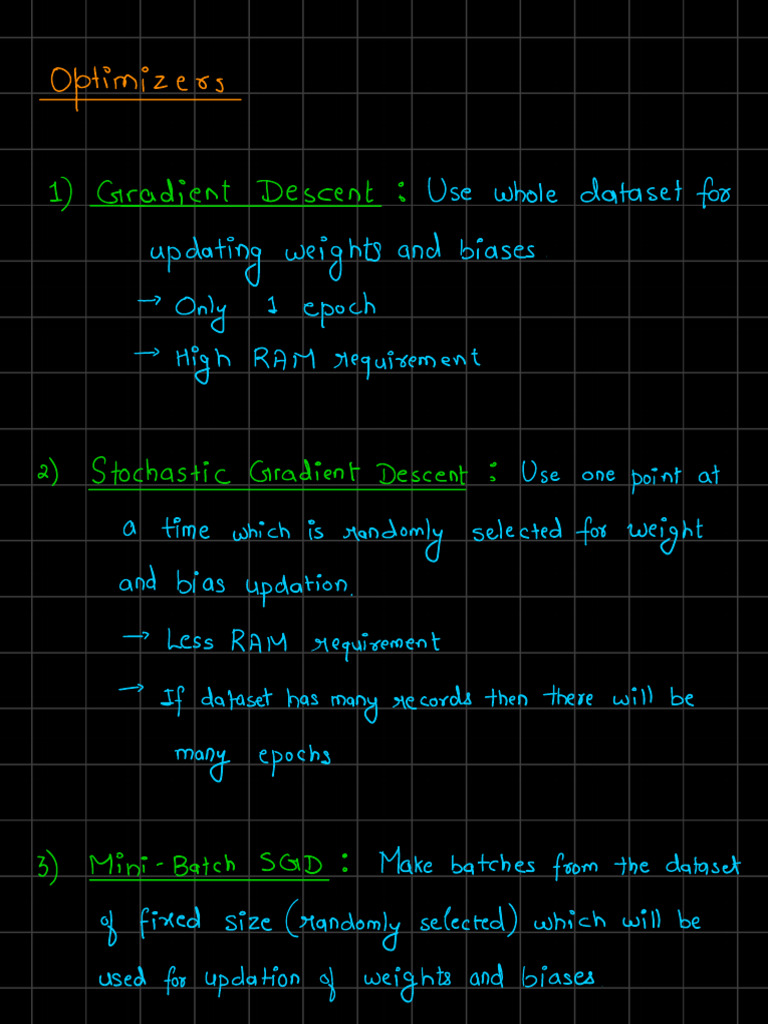 Optimizers
1) Gradient Descent : Use whole dataset for
updating weights and biases
→ Only 1 epoch
→ High RAM requirement
2) Stochastic Gradient Descent : Use one point at
a time which is randomly selected for weight
and bias updation.
→ Less RAM requirement
→ If dataset has many records then there will be
many epochs
3) Mini-Batch SGD : Make batches from the dataset
of fixed size (randomly selected) which will be
used for updation of weights and biases